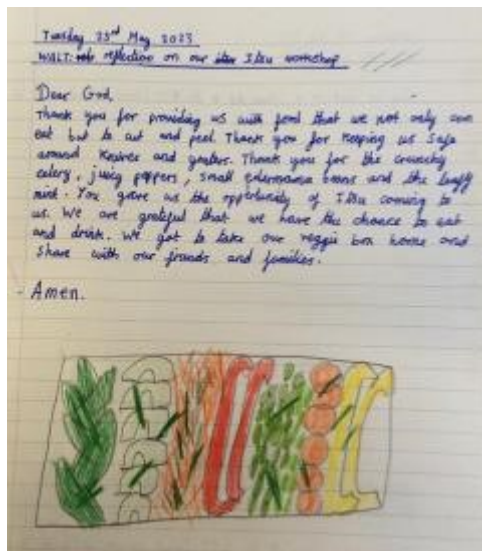 Tuesday 23rd May 2023
WALT: reflection on our Itsu workshop
Dear God,
Thank you for providing us with food that we not only can
eat but to cut and peel. Thank you for keeping us safe
around knives and graters. Thank you for the crunchy
celery, juicy peppers, small edamame beans and the leafy
mint. You gave us the opportunity of Itsu coming to
us. We are grateful that we have the chance to eat
and drink. We got to take our veggie box home and
share with our friends and families.
- Amen.